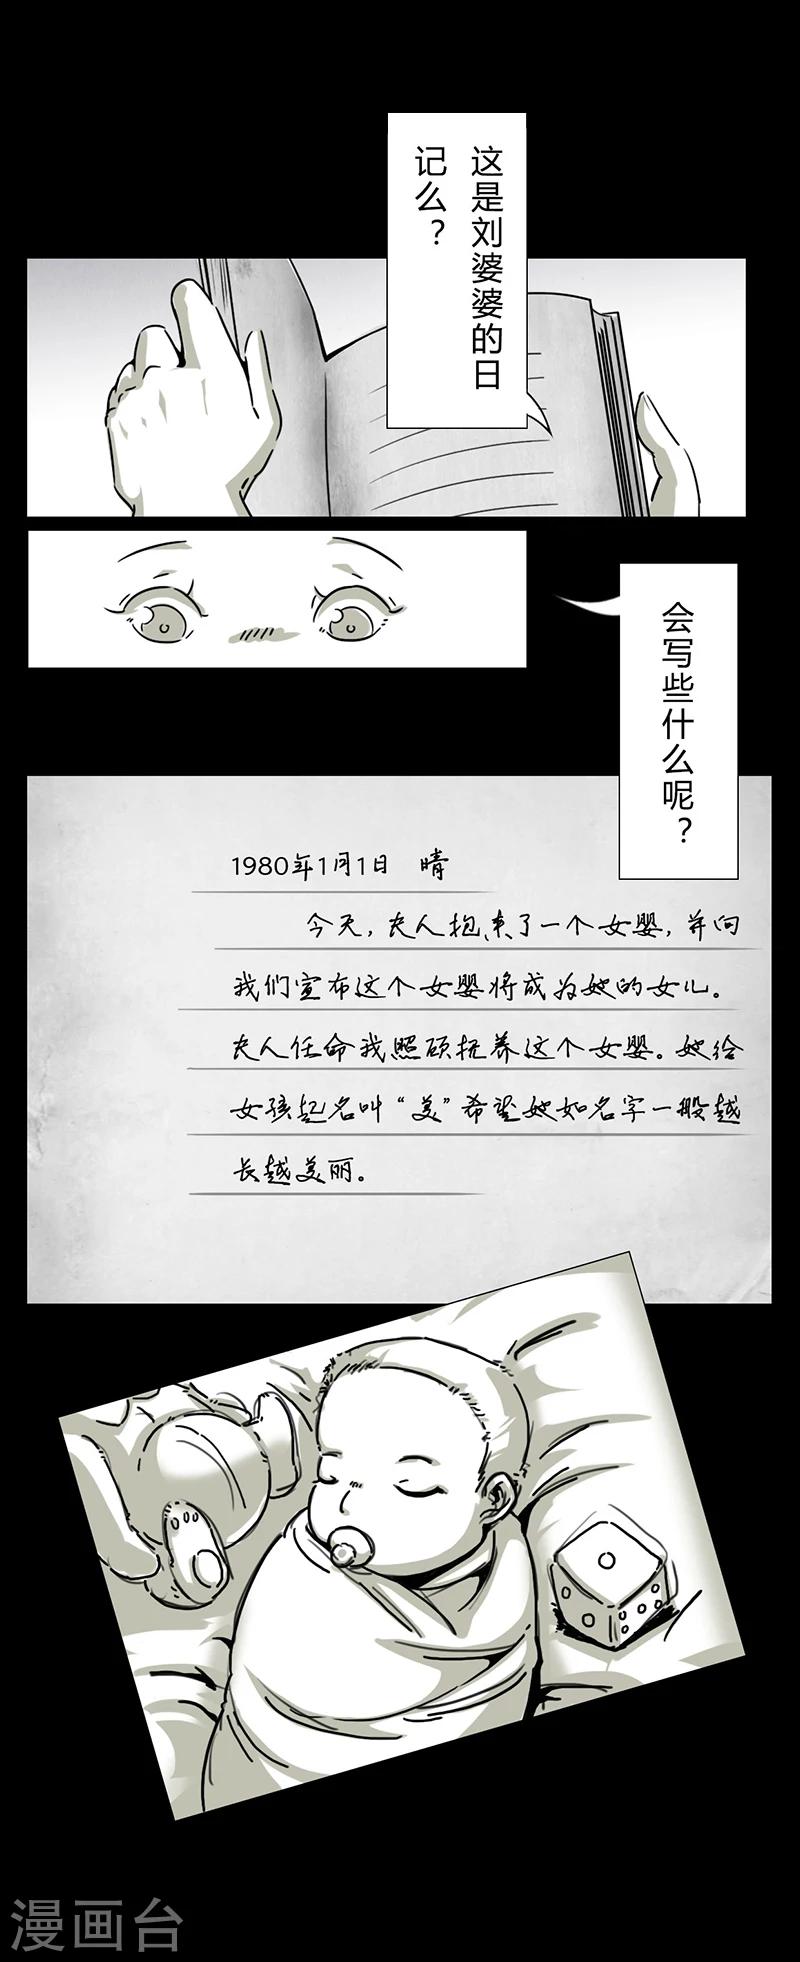 这是刘婆婆的日
记么？
会写些什么呢？
1980年1月1日 晴
今天，夫人抱来了一个女婴，并向
我们宣布这个女婴将成为她的女儿。
夫人任命我照顾抚养这个女婴。她给
女孩起名叫“美”希望她如名字一般越
长越美丽。
漫画台